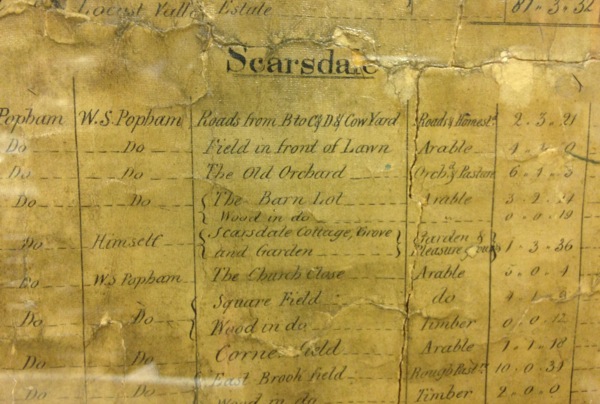 Locust Vall Estate 87.3.32
Scarsdale
Popham W.S. Popham Roads from B to C & D & Cow Yard Roads & Homest.d 2.3.21
Do Do Field in front of Lawn Arable 0
Do Do The Old Orchard Orch.d & Pasture 6.1.3
Do Do The Barn Lot Arable 3.2.24
Wood in do 0.0.19
Do Himself Scarsdale Cottage, Grove and Garden Garden & Pleasure 1.3.36
Do W.S Popham The Church Close Arable 5.0.1
Do Do Square Field do
Wood in do Timber 0.0.12
Do Corner field Arable 7.1.18
Do Do East Brook field Rough Past.e 10.0.31
Wood in do Timber 2.0.0